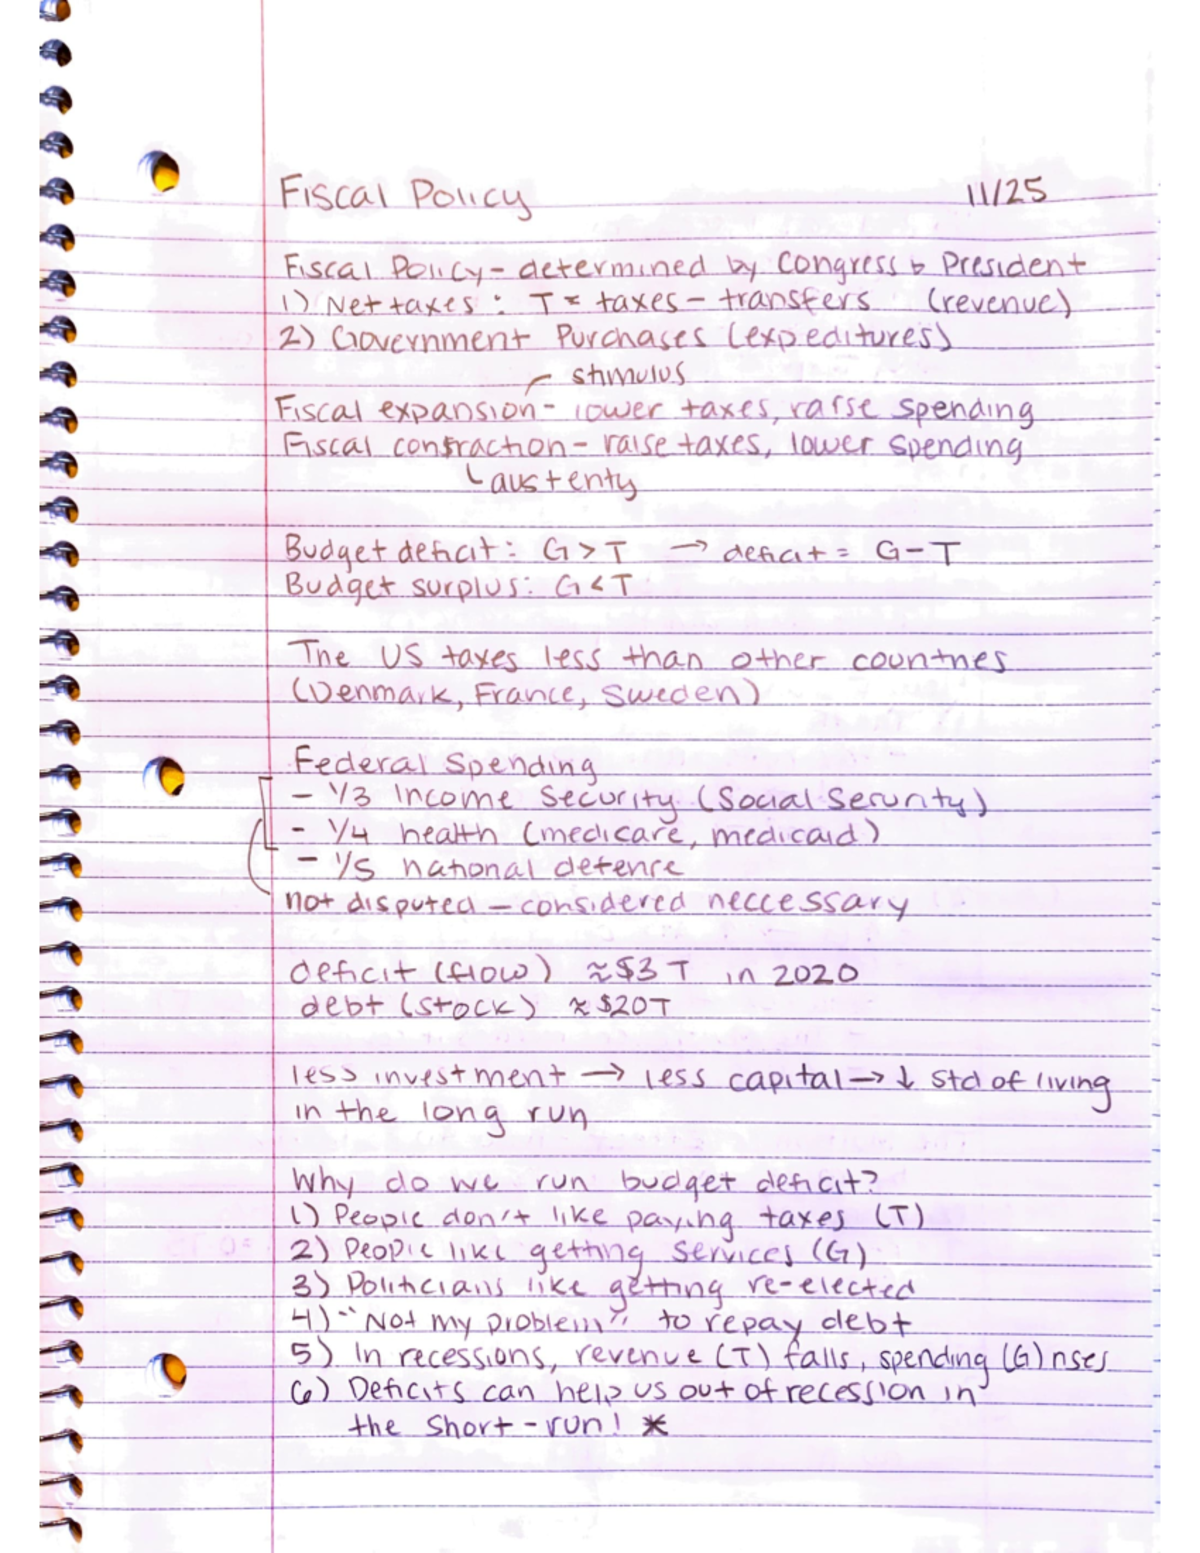 Fiscal Policy 11/25
Fiscal Policy - determined by Congress & President
1) Net taxes : T = taxes - transfers (revenue)
2) Government Purchases (expeditures)
stimulus
Fiscal expansion - lower taxes, raise spending
Fiscal contraction - raise taxes, lower spending
austerity
Budget deficit: G > T → deficit = G - T
Budget surplus: G < T
The US taxes less than other countries
(Denmark, France, Sweden)
Federal Spending
- 1/3 Income Security (Social Security)
- 1/4 health (medicare, medicaid)
- 1/5 national defense
not disputed - considered neccessary
deficit (flow) ≈ $3 T in 2020
debt (stock) ≈ $20T
less investment → less capital → ↓ std of living
in the long run
Why do we run budget deficit?
1) People don't like paying taxes (T)
2) People like getting services (G)
3) Politicians like getting re-elected
4) "Not my problem" to repay debt
5) In recessions, revenue (T) falls, spending (G) rises
6) Deficits can help us out of recession in
the short-run! *